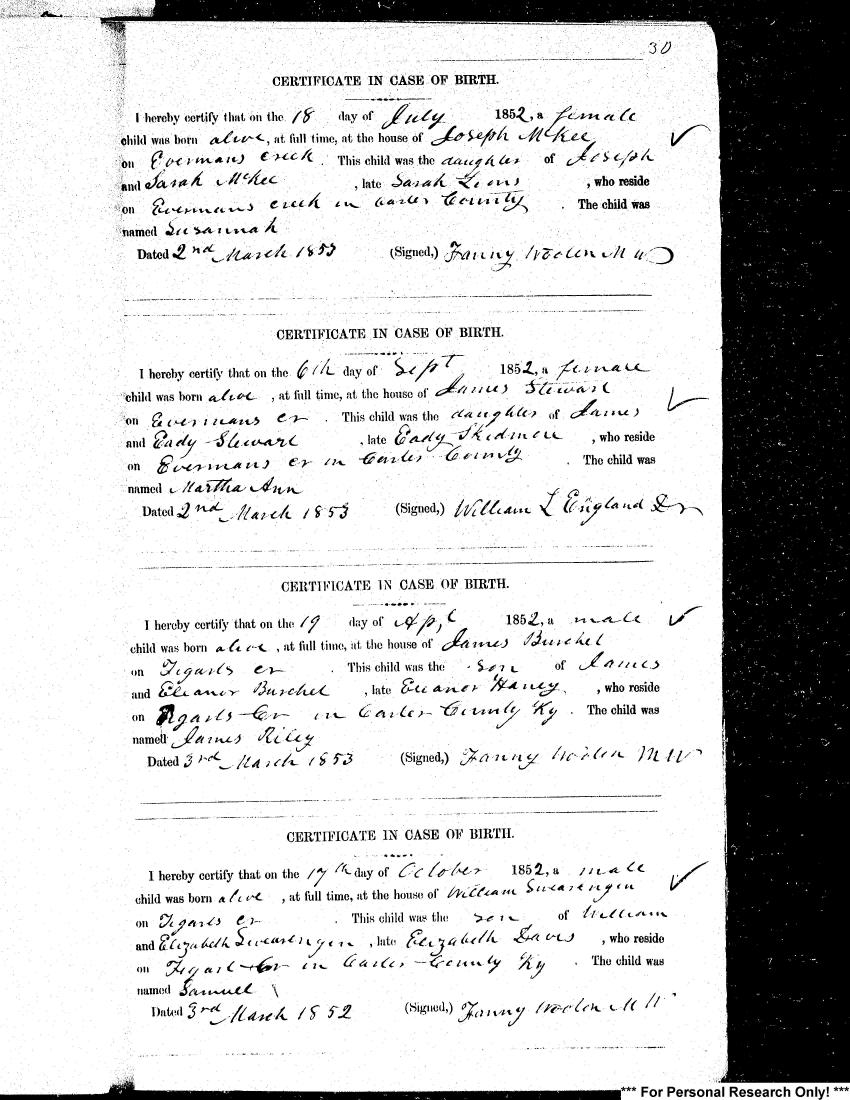 30
CERTIFICATE IN CASE OF BIRTH.
I hereby certify that on the 18 day of July 1852, a female
child was born alive, at full time, at the house of Joseph McKee
on Evermans creek. This child was the daughter of Joseph
and Sarah McKee, late Sarah Lions, who reside
on Evermans creek in Carter County. The child was
named Susannah
Dated 2nd March 1853 (Signed,) Fanny Woolen M W
CERTIFICATE IN CASE OF BIRTH.
I hereby certify that on the 6th day of Sept 1852, a female
child was born alive, at full time, at the house of James Stewart
on Evermans cr. This child was the daughter of James
and Eady Stewart, late Eady Skidmore, who reside
on Evermans cr in Carter County. The child was
named Martha Ann
Dated 2nd March 1853 (Signed,) William L England Dr
CERTIFICATE IN CASE OF BIRTH.
I hereby certify that on the 19 day of Apl 1852, a male
child was born alive, at full time, at the house of James Burchel
on Tigarts cr. This child was the son of James
and Eleanor Burchel, late Eleanor Haney, who reside
on Tigarts Cr in Carter County Ky. The child was
named James Riley
Dated 3rd March 1853 (Signed,) Fanny Woolen M W
CERTIFICATE IN CASE OF BIRTH.
I hereby certify that on the 17th day of October 1852, a male
child was born alive, at full time, at the house of William Swearengin
on Tigarts cr. This child was the son of William
and Elizabeth Swearengin, late Elizabeth Davis, who reside
on Tigart Cr in Carter County Ky. The child was
named Samuel
Dated 3rd March 1852 (Signed,) Fanny Woolen M W
*** For Personal Research Only! ***